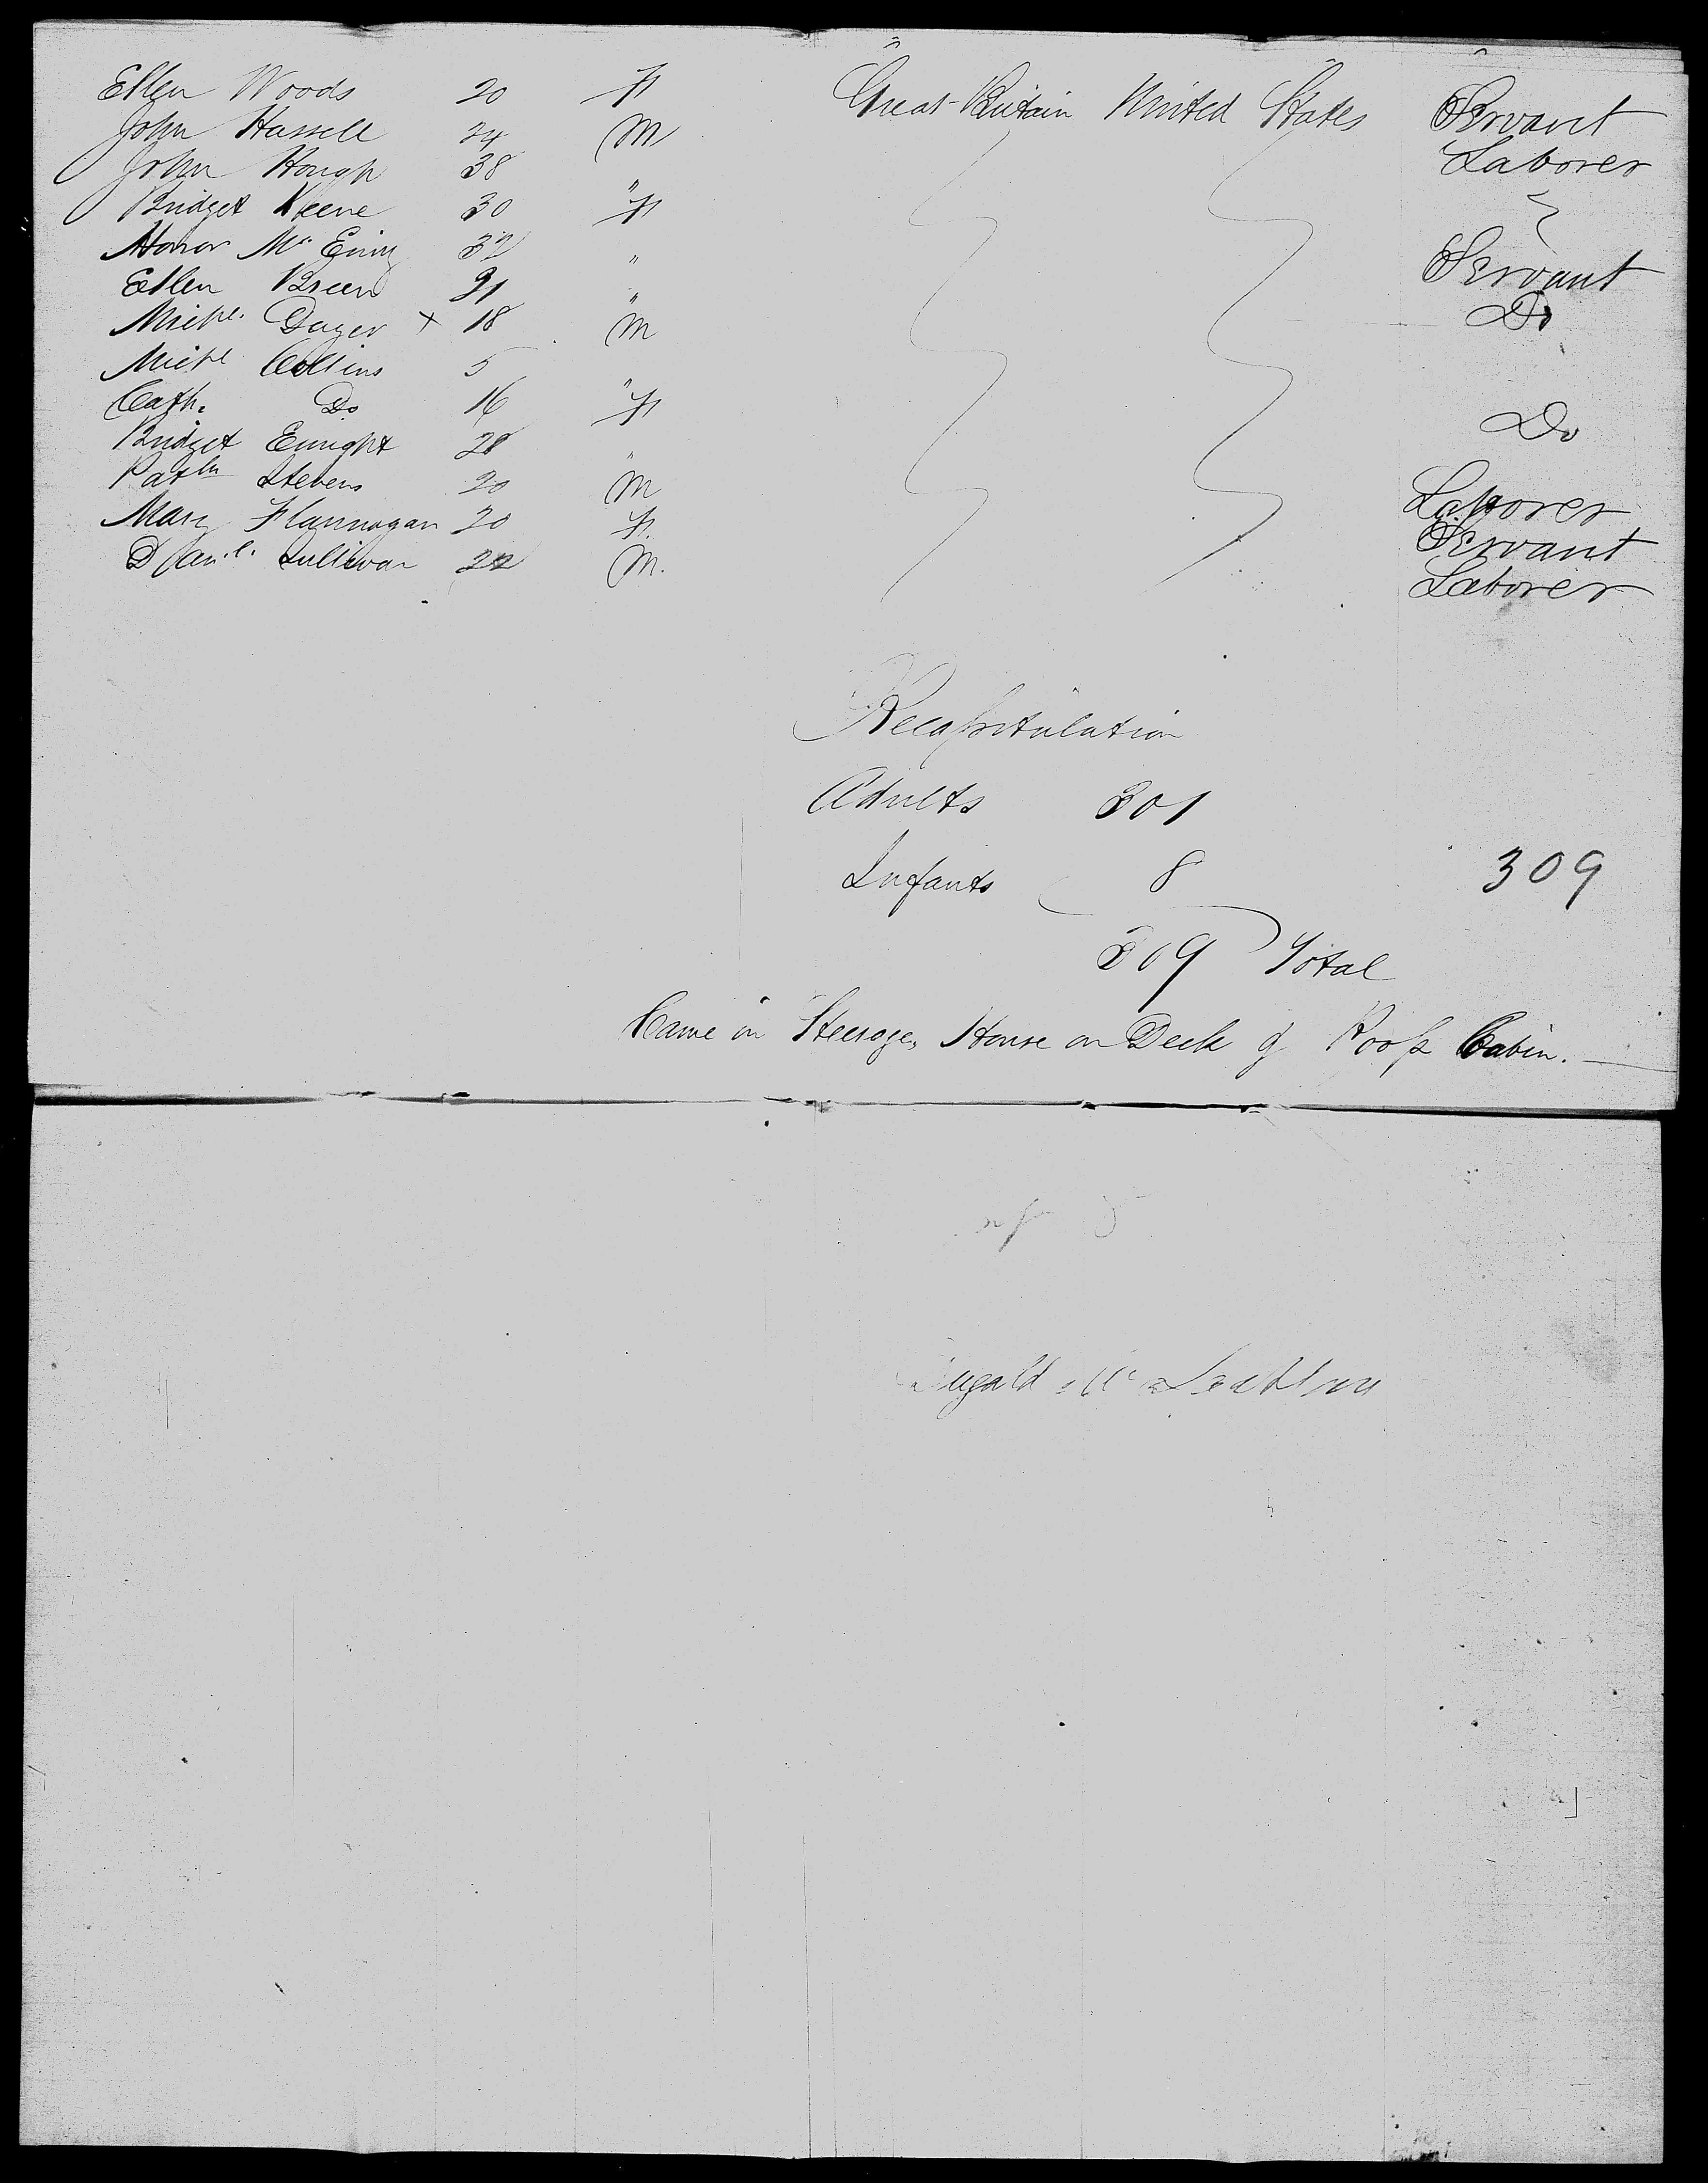 Ellen Woods 20 F Great Britain United States Servant
John Hassell 24 M Laborer
John Hough 38 "
Bridget Keene 30 F
Honor Mc 32 " Servant
Ellen Breen 21 " Do
Michl. Dazer x 18 M
Michl Collins 5 "
Cath. Do 16 F Do
Bridget Enright 28 "
Stevens 20 M Laborer
Mary Flannagan 20 F. Servant
Danl. Sullivan 22 M. Laborer
Recapitulation
Adults 301
Infants 8 309
309 Total
Came in Steerage, House on Deck & Poop Cabin.